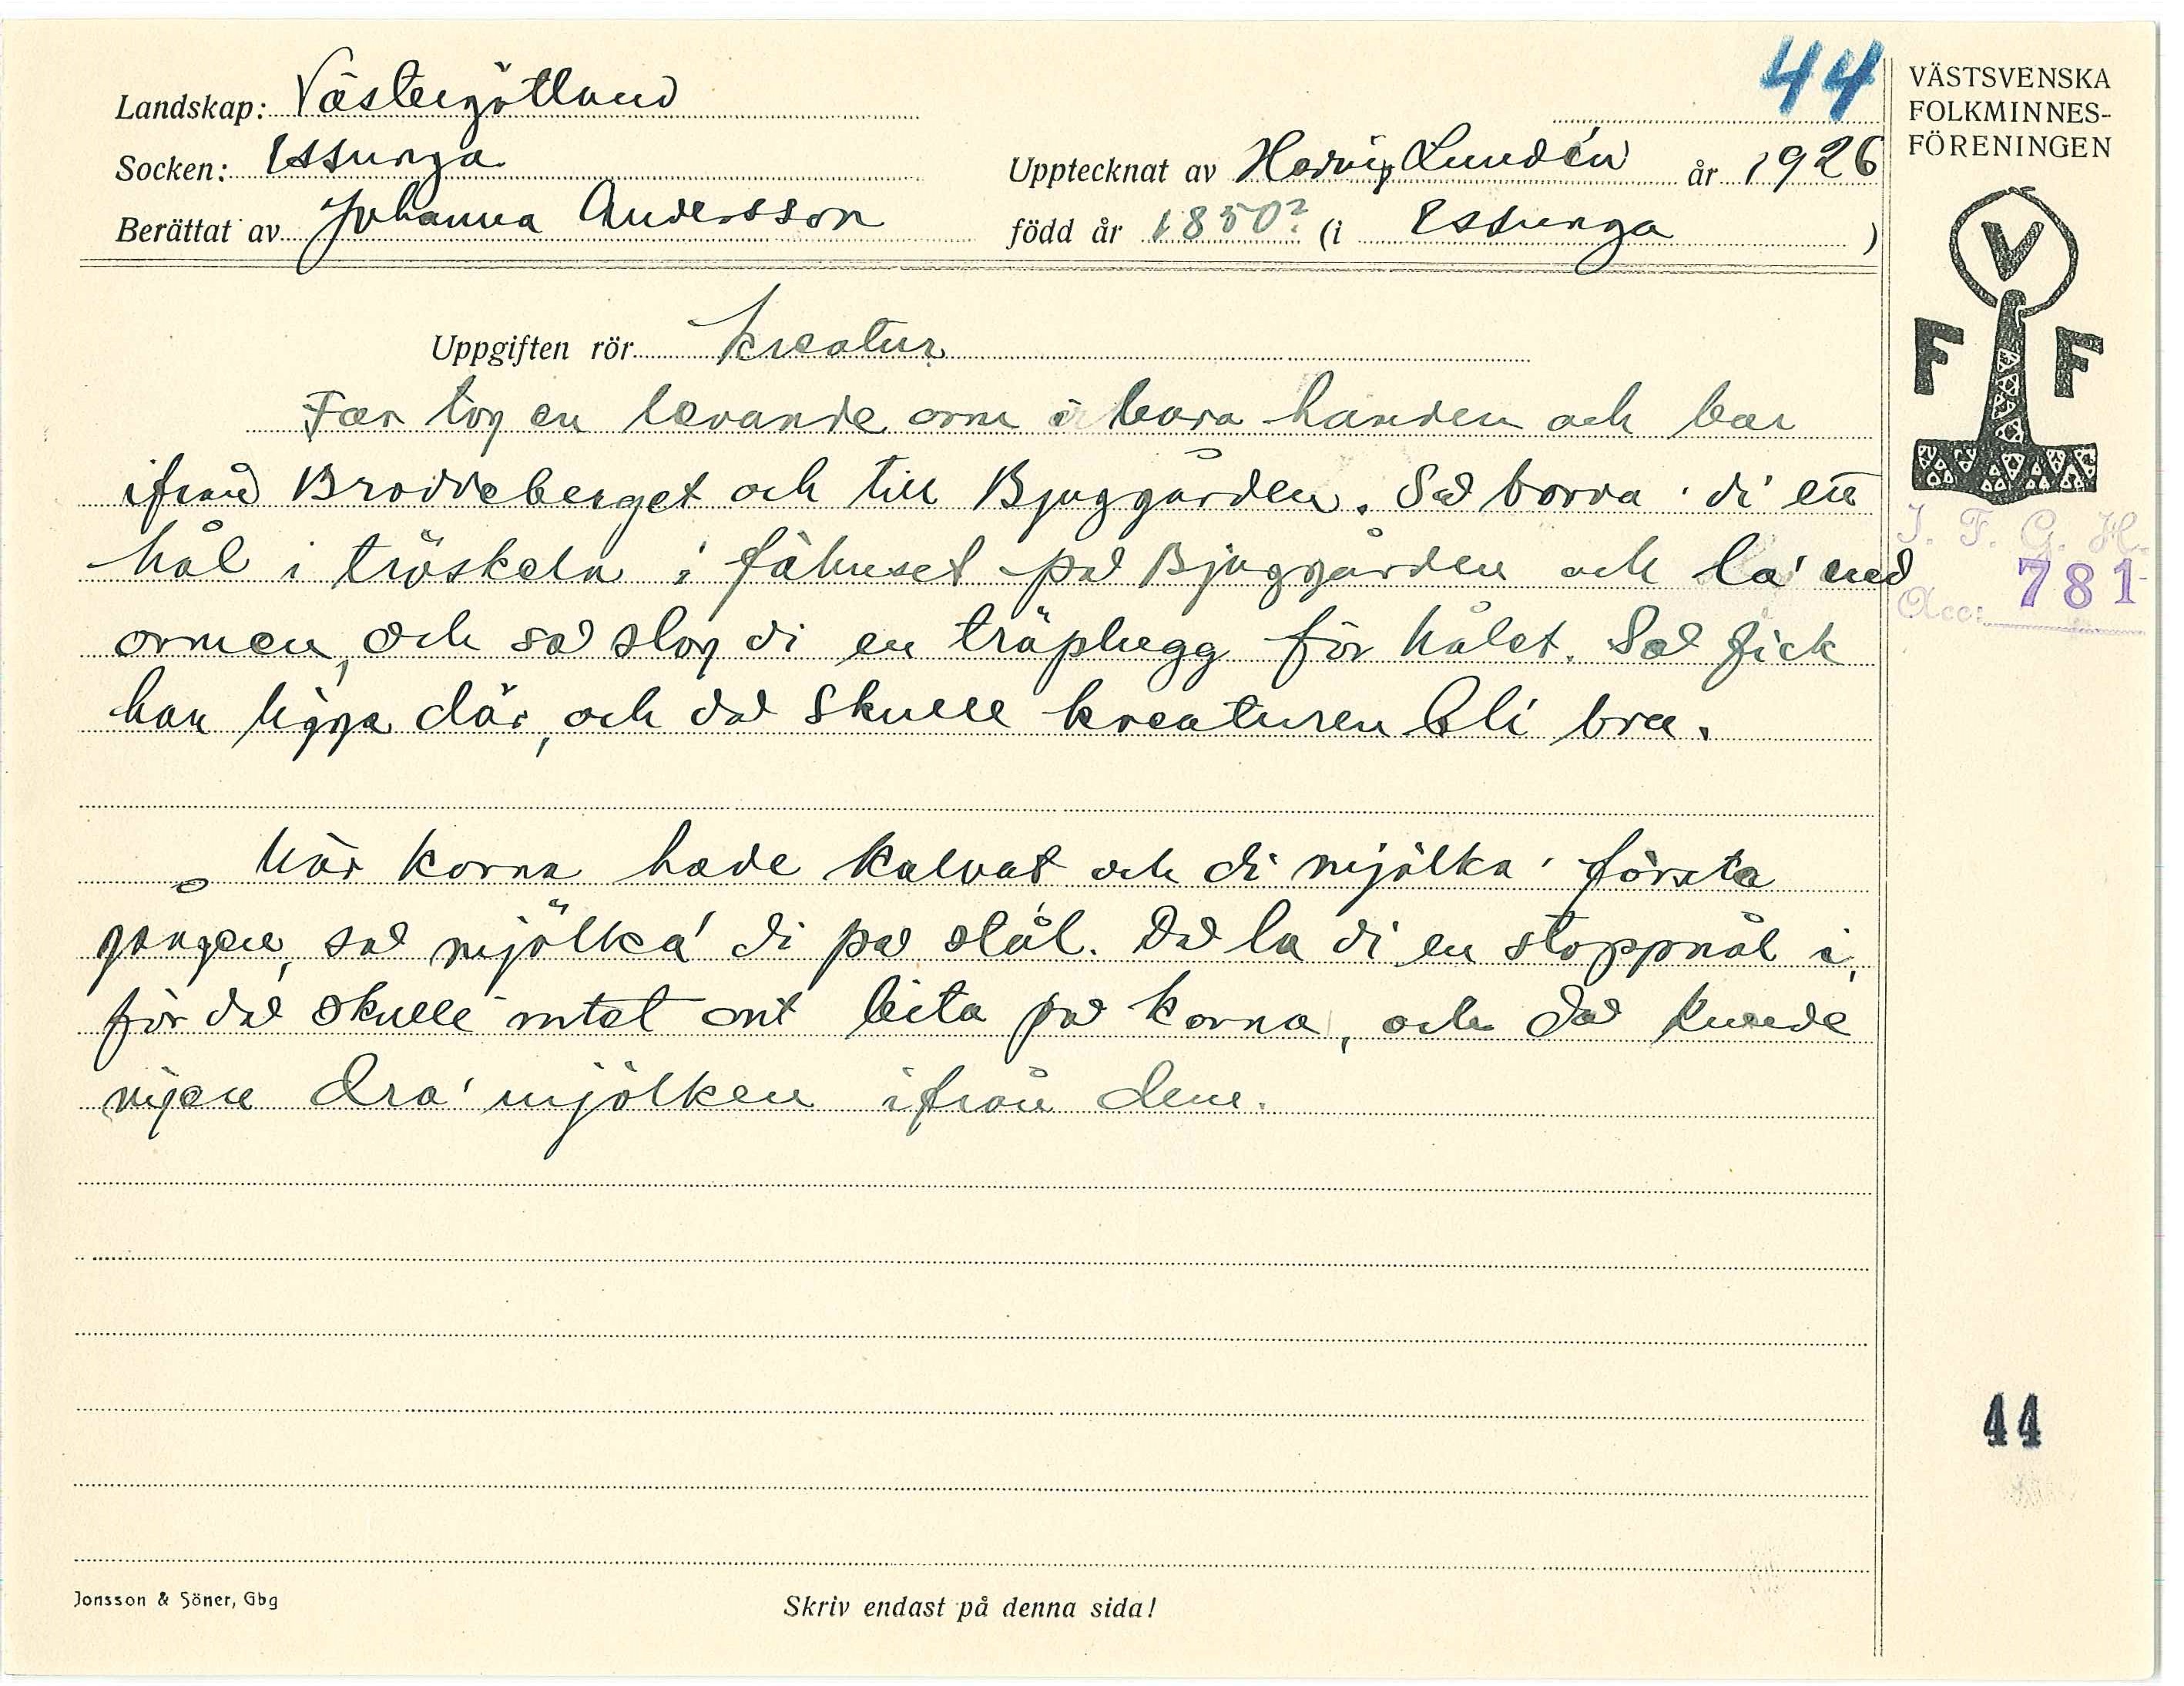 44
VÄSTSVENSKA
FOLKMINNES-
FÖRENINGEN
Landskap: Västergötland
Socken: Essunga
Upptecknat av Hedvig Lundén år 1926
Berättat av Johanna Andersson
född år 1850? (i Essunga)
V
F F
Uppgiften rör kreatur
Far tog en levande orm i bara handen och bar
ifrån Broddeberget och till Bjuggården. Så borra' di ett
hål i tröskeln i fähuset på Bjuggården och la' ned
ormen, och så slog di en träplugg för hålet. Så fick
han ligga där, och då skulle kreaturen bli bra.
När korna hade kalvat och di mjölka' första
gången, så mjölka' di på stål. Då la di en stoppnål i,
för då skulle intet ont bita på korna, och då kunde
ingen dra' mjölken ifrån dem.
I. F. G. H.
Acc: 781
44
Jonsson & Söner, Gbg
Skriv endast på denna sida!